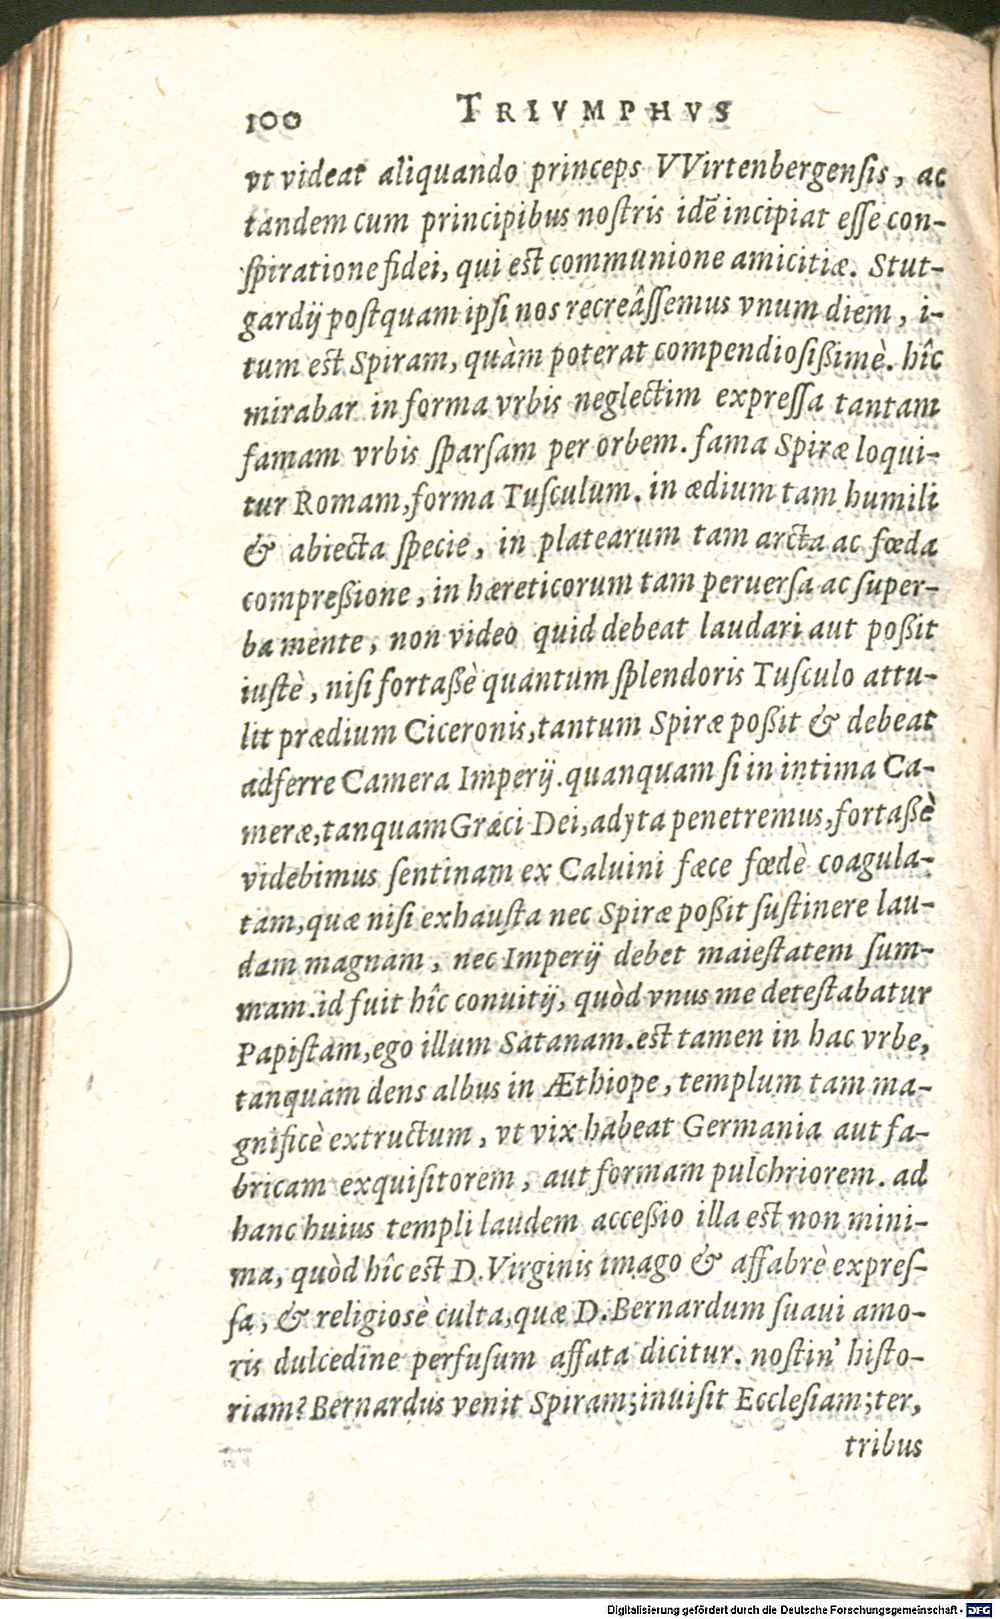 100 TRIVMPHVS
vt videat aliquando princeps VVirtenbergensis, ac
tandem cum principibus nostris idē incipiat esse con-
spiratione fidei, qui est communione amicitiæ. Stut-
gardij postquam ipsi nos recreâssemus vnum diem, i-
tum est Spiram, quàm poterat compendiosißimè. hîc
mirabar in forma vrbis neglectim expressa tantam
famam vrbis sparsam per orbem. fama Spiræ loqui-
tur Romam, forma Tusculum. in ædium tam humili
& abiecta specie, in platearum tam arcta ac fœda
compreßione, in hæreticorum tam peruersa ac super-
ba mente, non video quid debeat laudari aut poßit
iustè, nisi fortaßè quantum splendoris Tusculo attu-
lit prædium Ciceronis, tantum Spiræ poßit & debeat
adferre Camera Imperij. quanquam si in intima Ca-
meræ, tanquam Græci Dei, adyta penetremus, fortaßè
videbimus sentinam ex Caluini fæce fœdè coagula-
tam, quæ nisi exhausta nec Spiræ poßit sustinere lau-
dam magnam, nec Imperij debet maiestatem sum-
mam. id fuit hîc conuitij, quòd vnus me detestabatur
Papistam, ego illum Satanam. est tamen in hac vrbe,
tanquam dens albus in Æthiope, templum tam ma-
gnificè extructum, vt vix habeat Germania aut fa-
bricam exquisitorem, aut formam pulchriorem. ad
hanc huius templi laudem acceßio illa est non mini-
ma, quòd hîc est D. Virginis imago & affabrè expres-
sa, & religiosè culta, quæ D. Bernardum suaui amo-
ris dulcedine perfusum affata dicitur. nostin' histo-
riam? Bernardus venit Spiram; inuisit Ecclesiam; ter,
tribus
Digitalisierung gefördert durch die Deutsche Forschungsgemeinschaft - DFG